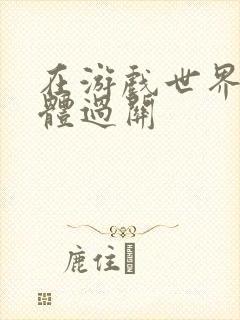 在游戲世界
體過關
鹿住